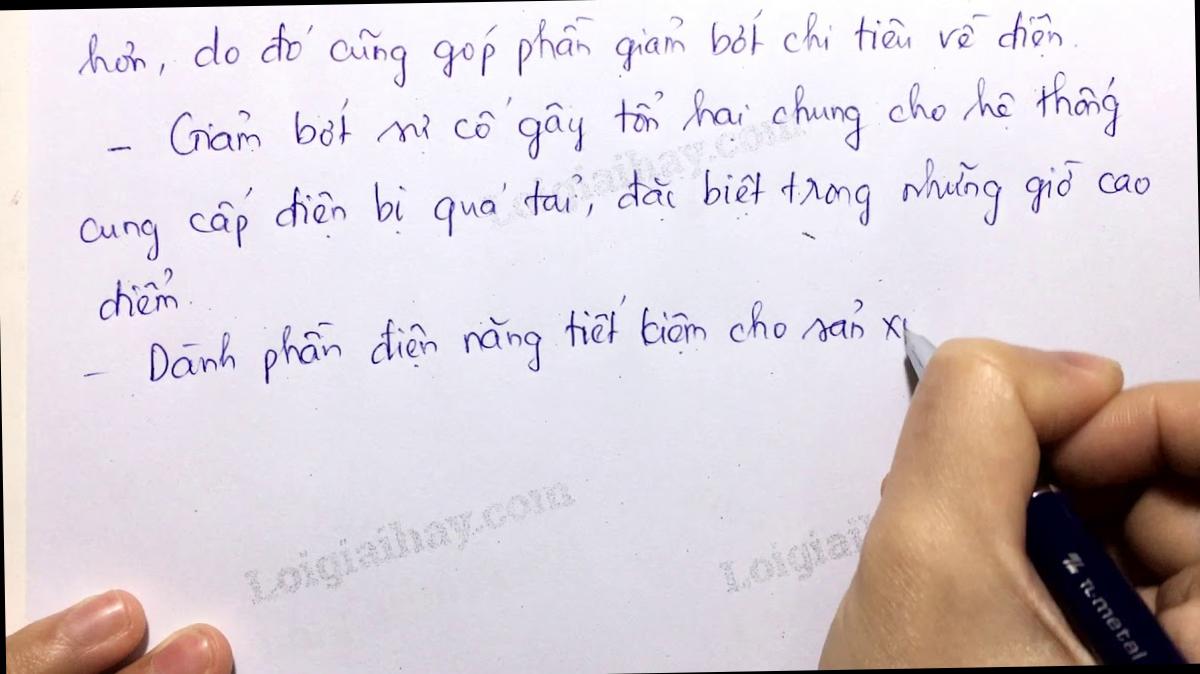 hơn, do đó cũng góp phần giảm bớt chi tiêu về điện.
- Giảm bớt sự cố gây tổn hại chung cho hệ thống
cung cấp điện bị quá tải, đặc biệt trong những giờ cao
điểm.
- Dành phần điện năng tiết kiệm cho sản x
Loigiaihay.com
Loigiaihay.com
Loigiai
π-metal